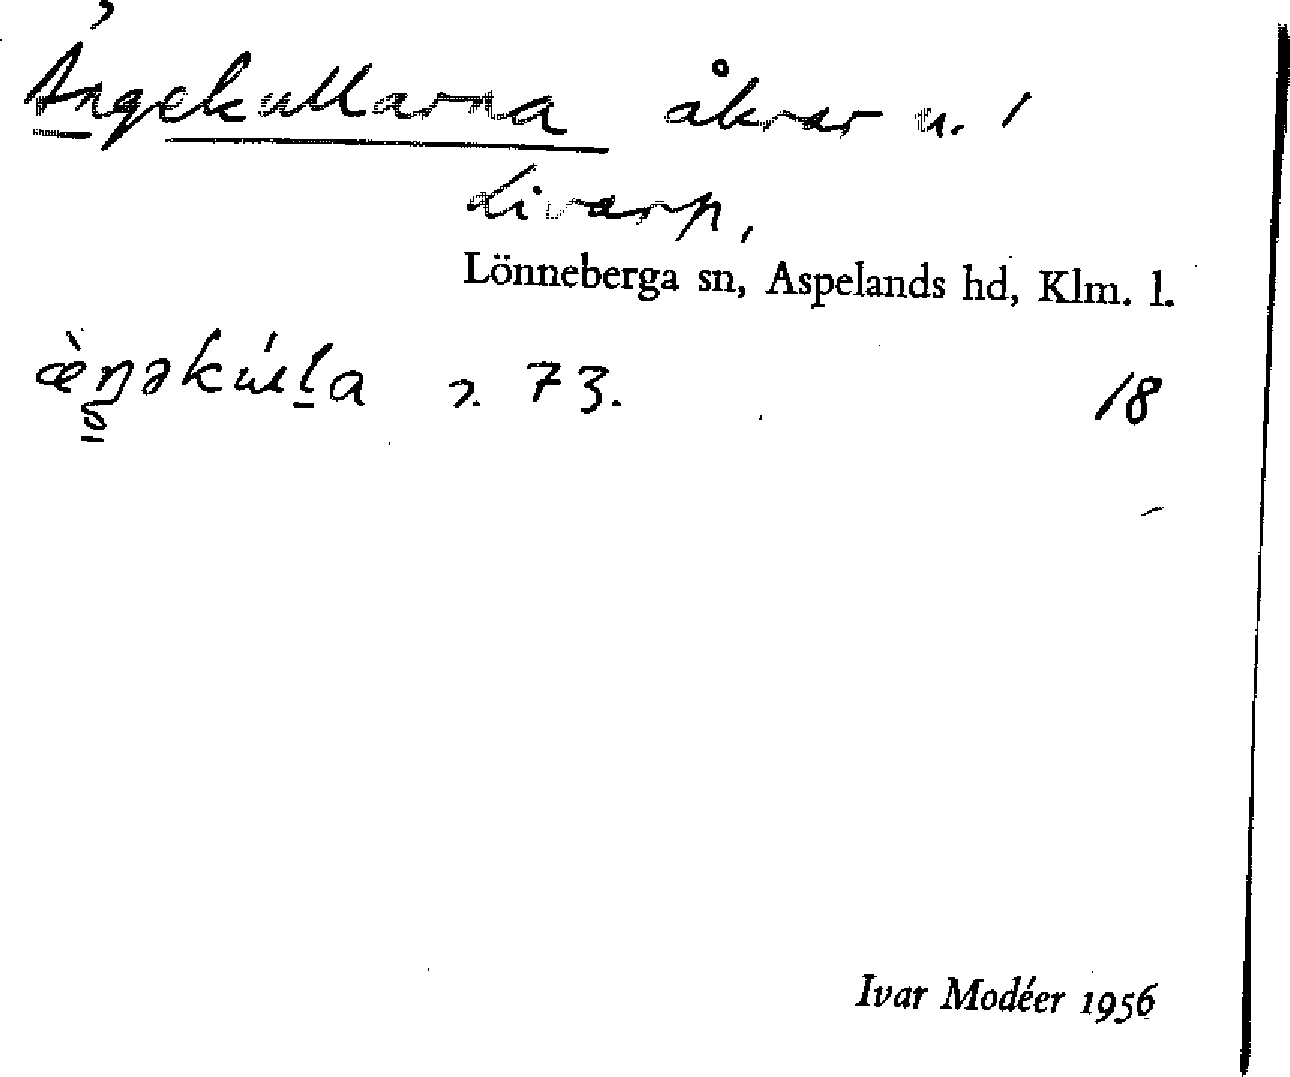 Ängekullarna åkrar u. 1
Livarp,
Lönneberga sn, Aspelands hd, Klm. l.
æ̀ŋəkúlla s. 73. 18
Ivar Modéer 1956